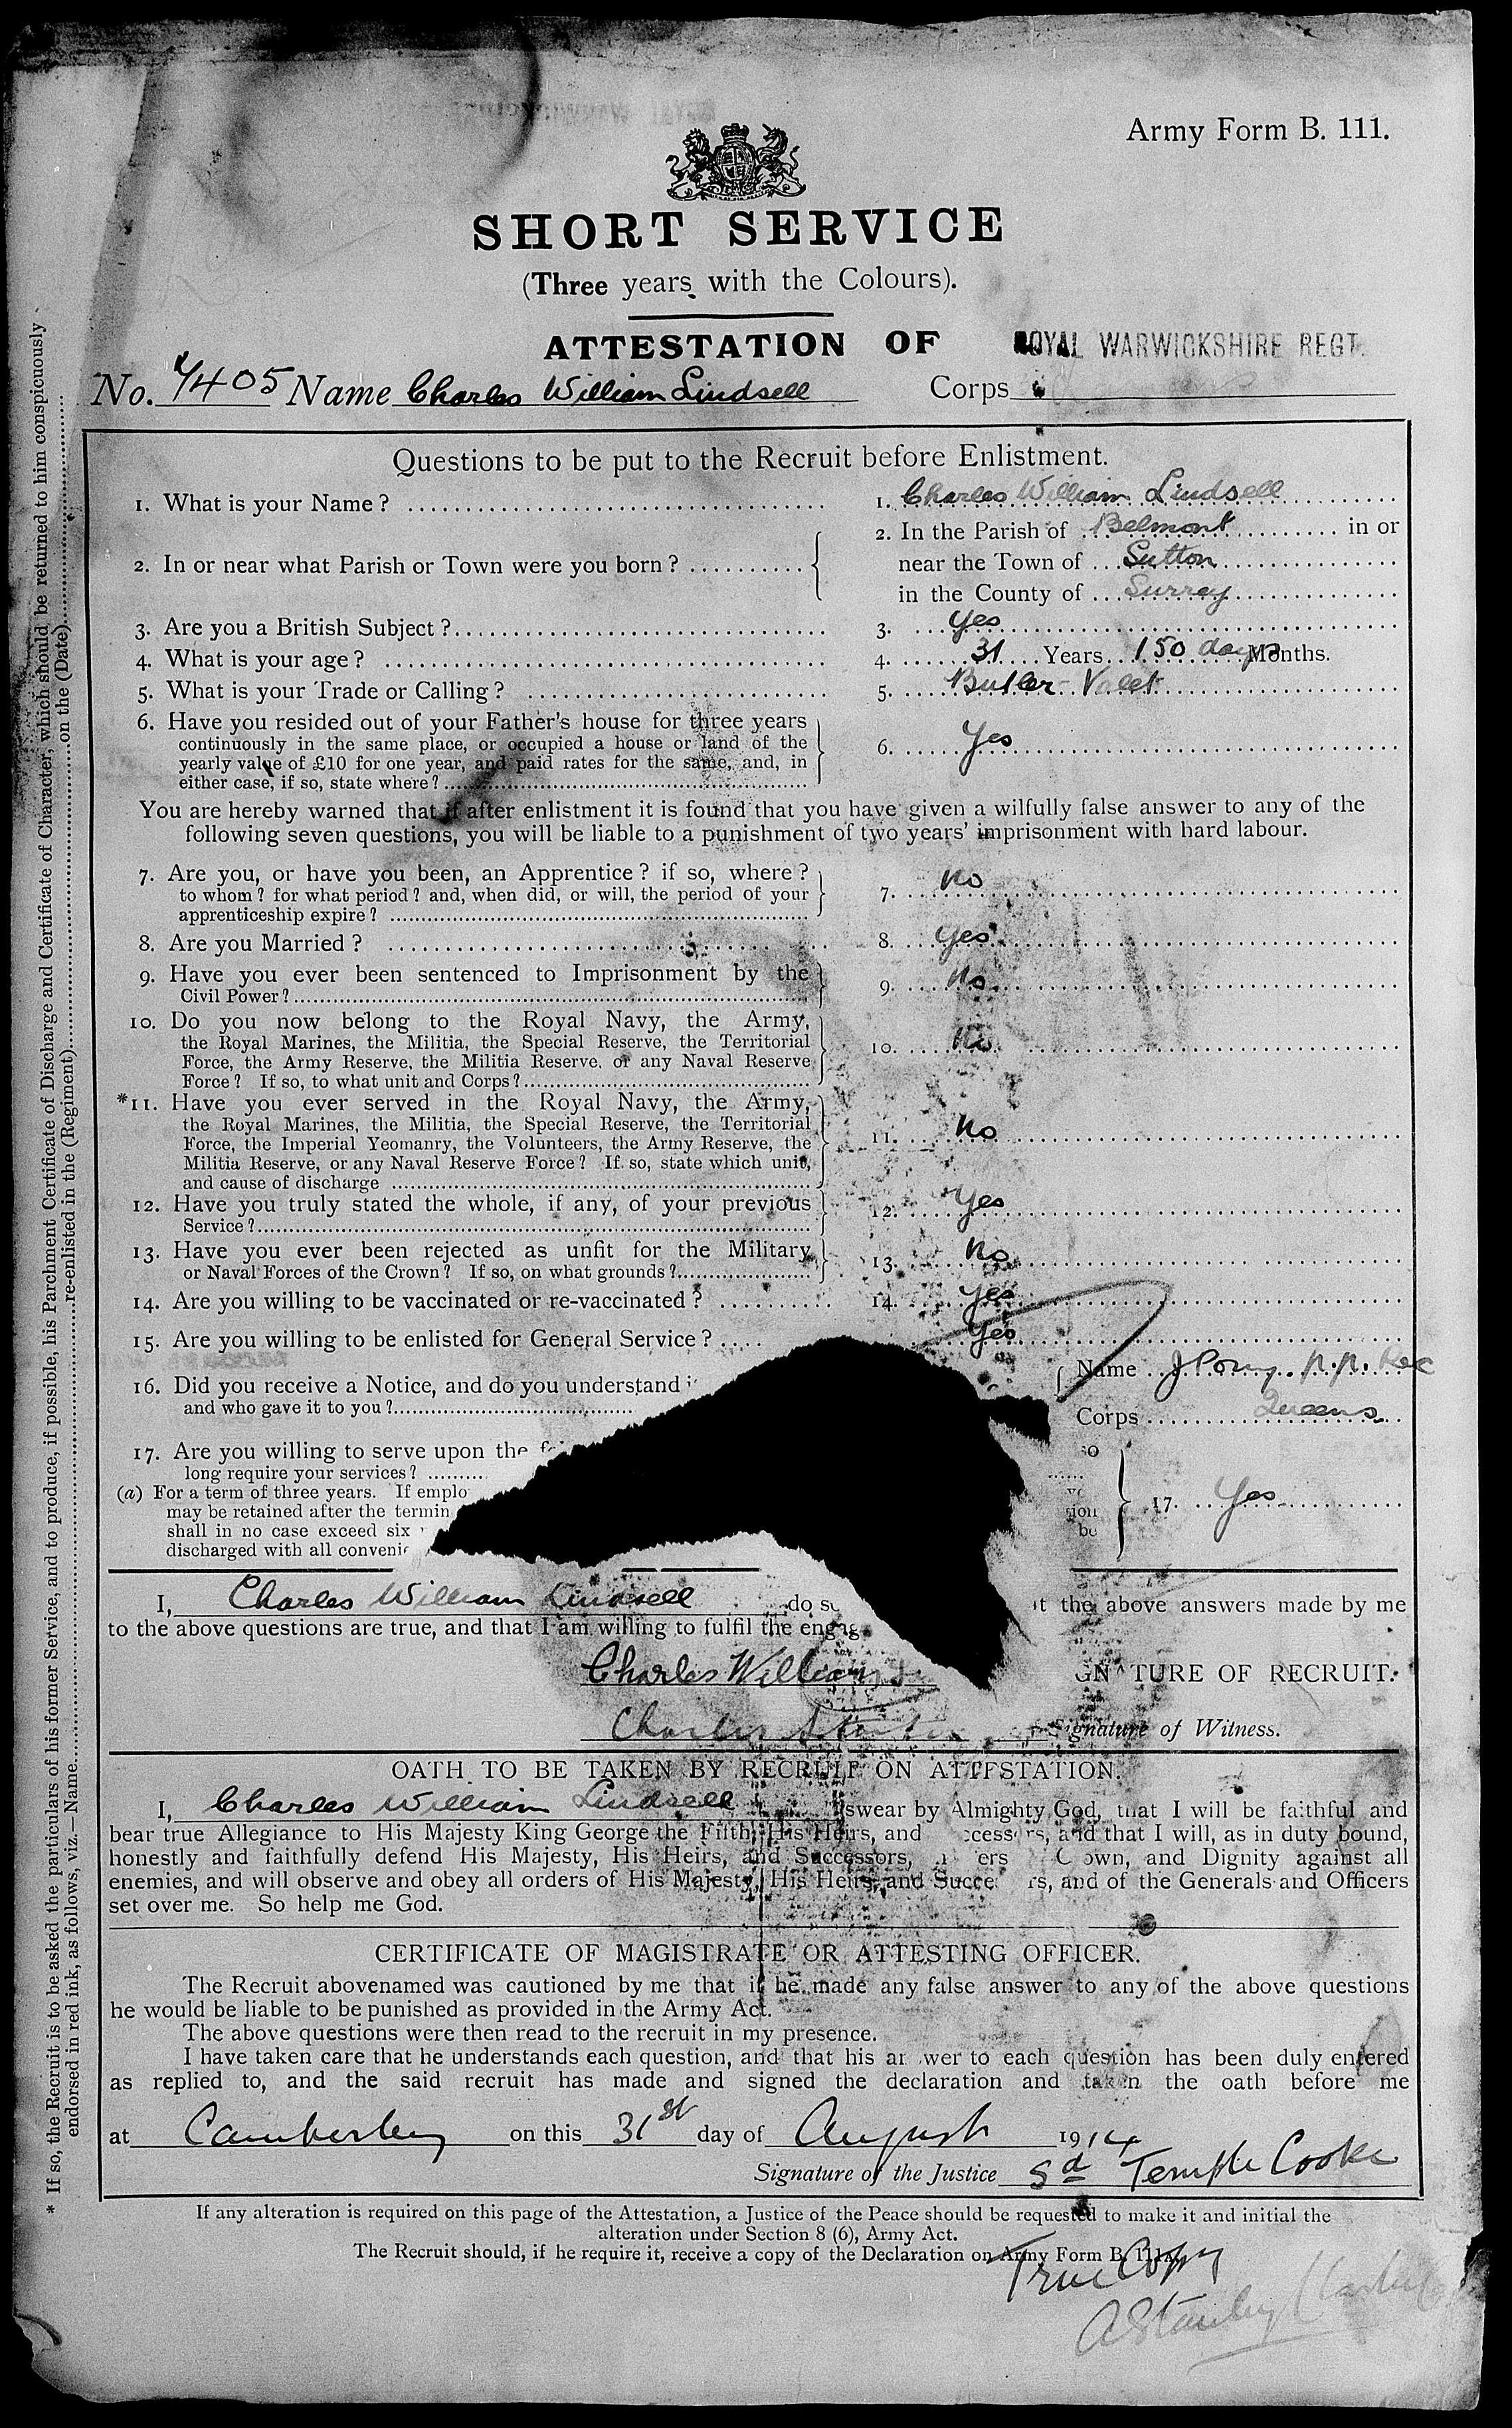 Army Form B. 111.
SHORT SERVICE
(Three years with the Colours).
ATTESTATION OF
ROYAL WARWICKSHIRE REGT.
No. 7405 Name Charles William Lindsell Corps
Questions to be put to the Recruit before Enlistment.
1. What is your Name? 1. Charles William Lindsell
2. In or near what Parish or Town were you born? 2. In the Parish of Belmont in or
near the Town of Sutton
in the County of Surrey
3. Are you a British Subject? 3. Yes
4. What is your age? 4. 31 Years 150 days Months.
5. What is your Trade or Calling? 5. Butler - Valet
6. Have you resided out of your Father's house for three years
continuously in the same place, or occupied a house or land of the
yearly value of £10 for one year, and paid rates for the same, and, in
either case, if so, state where? 6. Yes
You are hereby warned that if after enlistment it is found that you have given a wilfully false answer to any of the
following seven questions, you will be liable to a punishment of two years' imprisonment with hard labour.
7. Are you, or have you been, an Apprentice? if so, where?
to whom? for what period? and, when did, or will, the period of your
apprenticeship expire? 7. No
8. Are you Married? 8. Yes
9. Have you ever been sentenced to Imprisonment by the
Civil Power? 9. No
10. Do you now belong to the Royal Navy, the Army,
the Royal Marines, the Militia, the Special Reserve, the Territorial
Force, the Army Reserve, the Militia Reserve, or any Naval Reserve
Force? If so, to what unit and Corps? 10. No
*11. Have you ever served in the Royal Navy, the Army,
the Royal Marines, the Militia, the Special Reserve, the Territorial
Force, the Imperial Yeomanry, the Volunteers, the Army Reserve, the
Militia Reserve, or any Naval Reserve Force? If so, state which unit,
and cause of discharge 11. No
12. Have you truly stated the whole, if any, of your previous
Service? 12. Yes
13. Have you ever been rejected as unfit for the Military
or Naval Forces of the Crown? If so, on what grounds? 13. No
14. Are you willing to be vaccinated or re-vaccinated? 14. Yes
15. Are you willing to be enlisted for General Service? Yes
16. Did you receive a Notice, and do you understand
and who gave it to you?
Name
Corps Queens
17. Are you willing to serve upon the
long require your services?
(a) For a term of three years. If emplo
may be retained after the termin
shall in no case exceed six
discharged with all conveni
so
be
17. Yes
I, Charles William Lindsell do the above answers made by me
to the above questions are true, and that I am willing to fulfil the engag
Charles William SIGNATURE OF RECRUIT.
Charles Signature of Witness.
OATH TO BE TAKEN BY RECRUIT ON ATTESTATION.
I, Charles William Lindsell swear by Almighty God, that I will be faithful and
bear true Allegiance to His Majesty King George the Fifth, His Heirs, and Successors, and that I will, as in duty bound,
honestly and faithfully defend His Majesty, His Heirs, and Successors, Crown, and Dignity against all
enemies, and will observe and obey all orders of His Majesty, His Heirs, and Successors, and of the Generals and Officers
set over me. So help me God.
CERTIFICATE OF MAGISTRATE OR ATTESTING OFFICER.
The Recruit abovenamed was cautioned by me that if he made any false answer to any of the above questions
he would be liable to be punished as provided in the Army Act.
The above questions were then read to the recruit in my presence.
I have taken care that he understands each question, and that his answer to each question has been duly entered
as replied to, and the said recruit has made and signed the declaration and taken the oath before me
at Camberley on this 31st day of August 1914
Signature of the Justice Sd Temple Cooke
If any alteration is required on this page of the Attestation, a Justice of the Peace should be requested to make it and initial the
alteration under Section 8 (6), Army Act.
The Recruit should, if he require it, receive a copy of the Declaration on Army Form B. 111A.
True Copy
A Stanley
* If so, the Recruit is to be asked the particulars of his former Service, and to produce, if possible, his Parchment Certificate of Discharge and Certificate of Character, which should be returned to him conspicuously
endorsed in red ink, as follows, viz.—Name re-enlisted in the (Regiment) on the (Date)